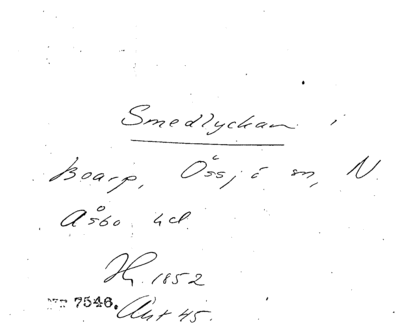 Smedlyckan i
Boarp, Össjö sn, N
Åsbo hd
1852
7546. Akt 45.